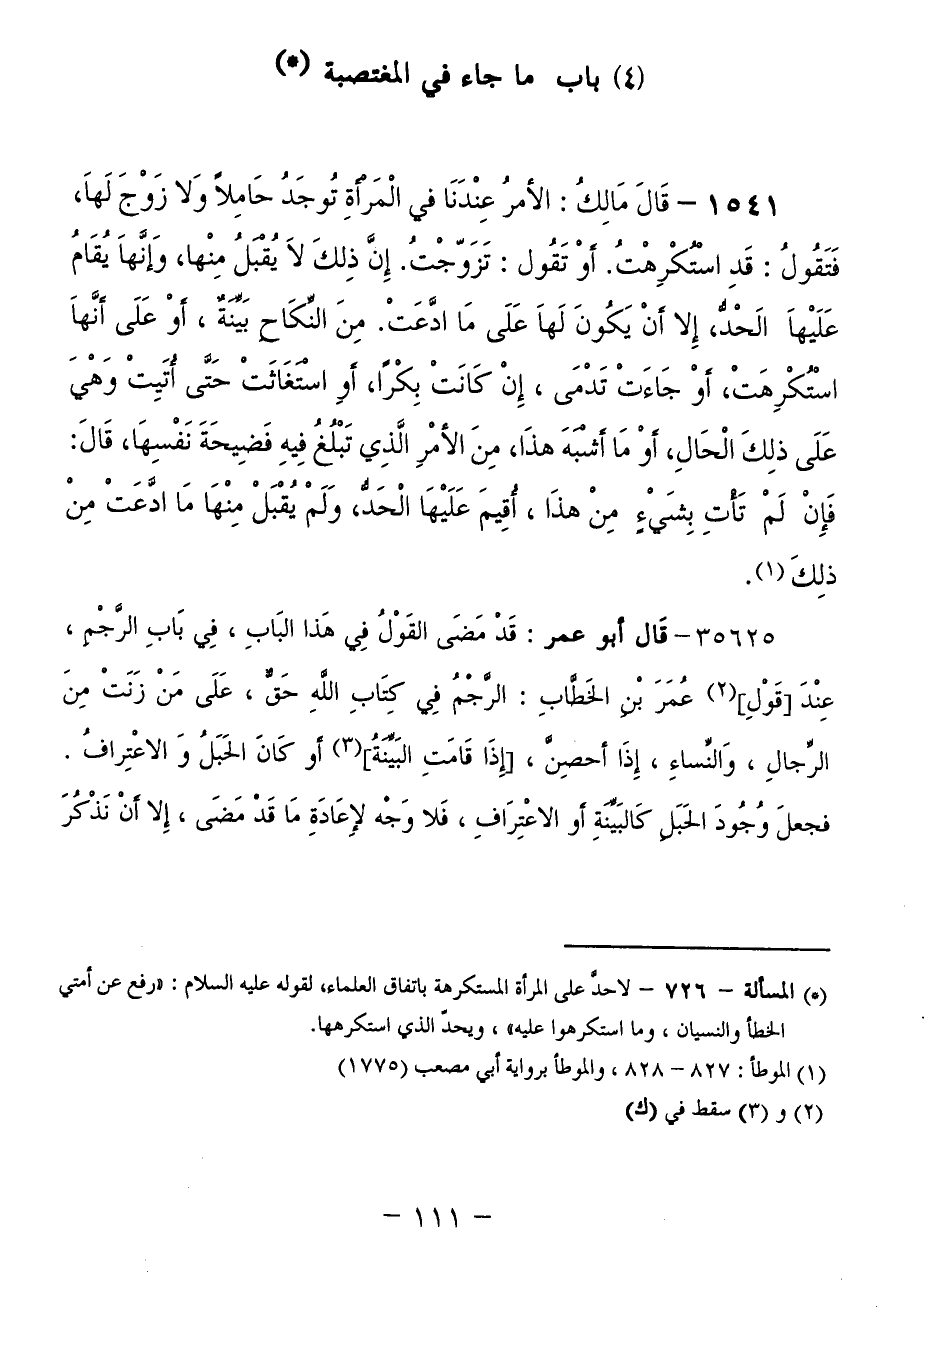 (٤) باب ما جاء في المغتصبة (*)
١٥٤١ – قَالَ مَالِكُ : الأمرُ عِنْدَنَا في الْمَرْأَةِ تُوجَدُ حَامِلاً وَلا زَوْجَ لَهاَ،
فَتَقُولُ : قَدِ اسْتُكْرِهْتُ. أوْ تَقُول : تَزَوّجْتُ. إِنَّ ذلِكَ لاَ يُقْبَلُ مِنْها، وَإنَّهاَ يُقَامُ
عَلَيْهاَ الَحْدُّ، إِلا أنْ يَكُونَ لَهاَ عَلَى مَا ادَّعَتْ. مِنَ النِّكَاحِ بَيِّنَةٌ ، أوْ عَلَى أنَّها
اسْتُكْرِهَتْ، أوْ جَاءَتْ تَدْمَى ، إِنْ كَانَتْ بِكْرًا، أوِ اسْتَغَاثَتْ حَتَّى أُتَيِتْ وَهْيَ
عَلَى ذلِكَ الْحَالِ، أوْ مَا أشْبَهَ هذَا، مِنَ الأمْرِ الَّذِي تَبْلُغُ فِيهِ فَضِيحَةَ نَفْسِهَا، قَالَ:
فَإِنْ لَمْ تَأْتِ بِشَيْءٍ مِنْ هذَا ، أُقِيمَ عَلَيْهَا الْحَدُّ، وَلَمْ يُقْبَلْ مِنْهَا مَا ادَّعَتْ مِنْ
ذلِكَ (١).
٣٥٦٢٥– قَال أبو عمر : قَدْ مَضَى القَوْلُ فِي هَذا البَابِ ، فِي بَابِ الرَّجْمِ ،
عِنْدَ [قَوْلِ](٢) عُمَرَ بْنِ الخَطَّابِ : الرَّجْمُ فِي كِتَابِ اللَّهِ حَقٌّ ، عَلَى مَنْ زَنَتْ مِنَ
الرِّجالِ ، وَالنِّساءِ ، إِذَا أحصِنَّ ، [إِذَا قَامَتِ البَيِّنَةُ](٣) أو كَانَ الحَبَلُ وَ الاعْتِرافُ .
فجعلَ وُجُودَ الحَبَلِ كَالبَيِّنَةِ أو الاعْتِرَافِ ، فَلا وَجْه لإِعَادَةِ مَا قَدْ مَضَى ، إِلا أنْ نَذْكُرَ
(*) المسألة – ٧٢٦ – لاحدَّ على المرأة المستكرهة باتفاق العلماء، لقوله عليه السلام : «رفع عن أمتي
الخطأ والنسيان ، وما استكرهوا عليه» ، ويحدّ الذي استكرهها.
(١) الموطأ : ٨٢٧ – ٨٢٨ ، والموطأ برواية أبي مصعب (١٧٧٥)
(٢) و (٣) سقط في (ك)
– ١١١ –